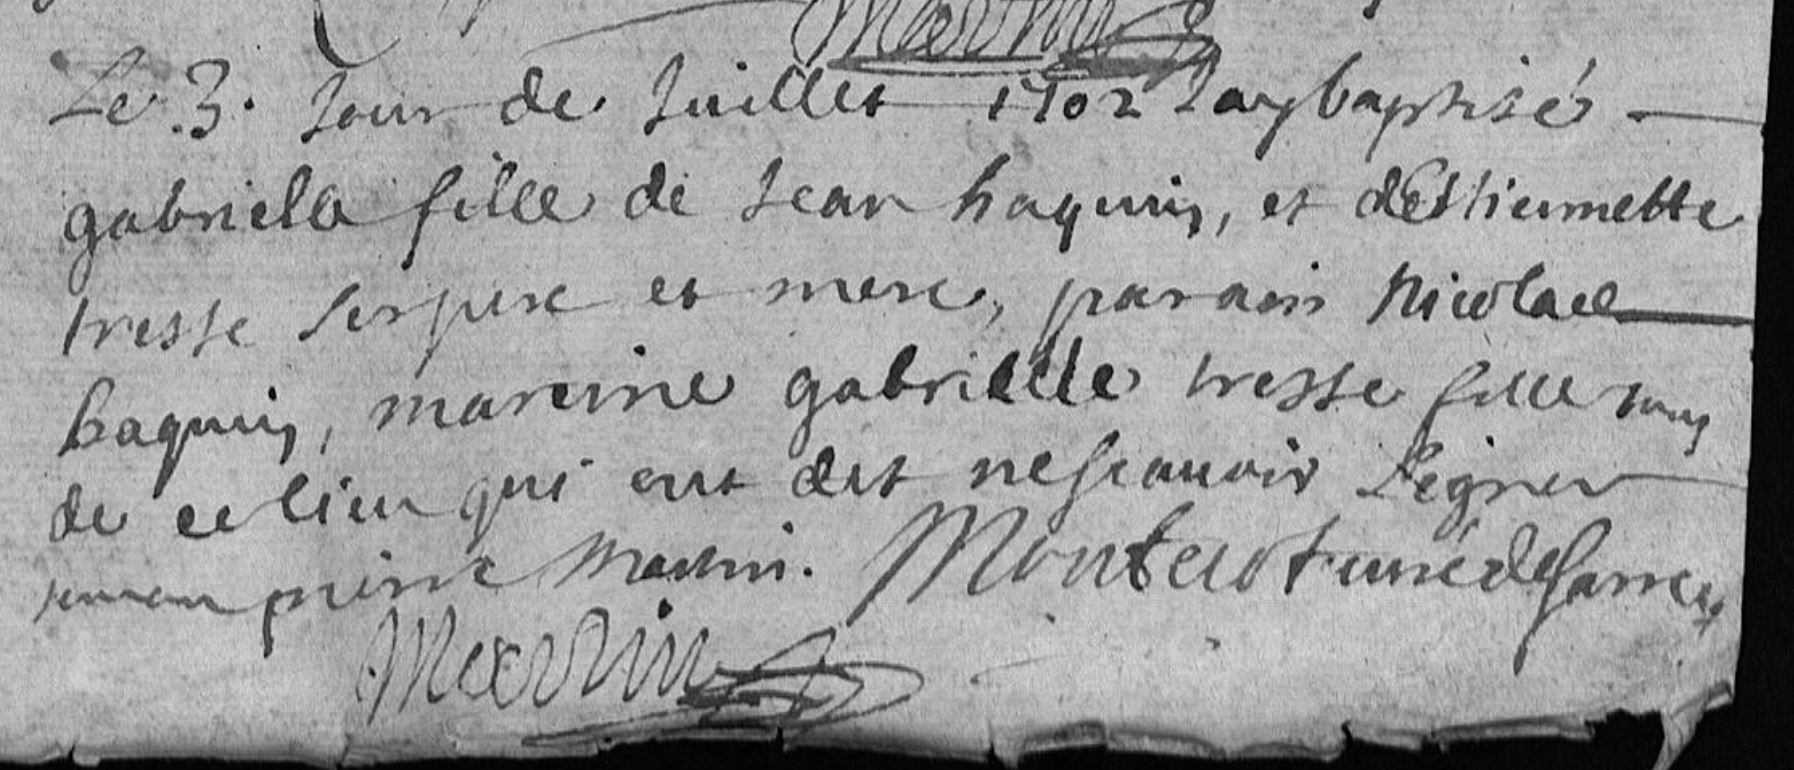 Martin
Le 3. Jour de Juillet 1702 Jay baptisé
gabrielle fille de Jean haquin, et dEstiennette
tresse ses pere et mere, parain Nicolas
haquin, mareine gabrielle tresse fille tous
de ce lieu qui ont dit ne scauoir signer
pierre Martin. Montenot curé de
Martin